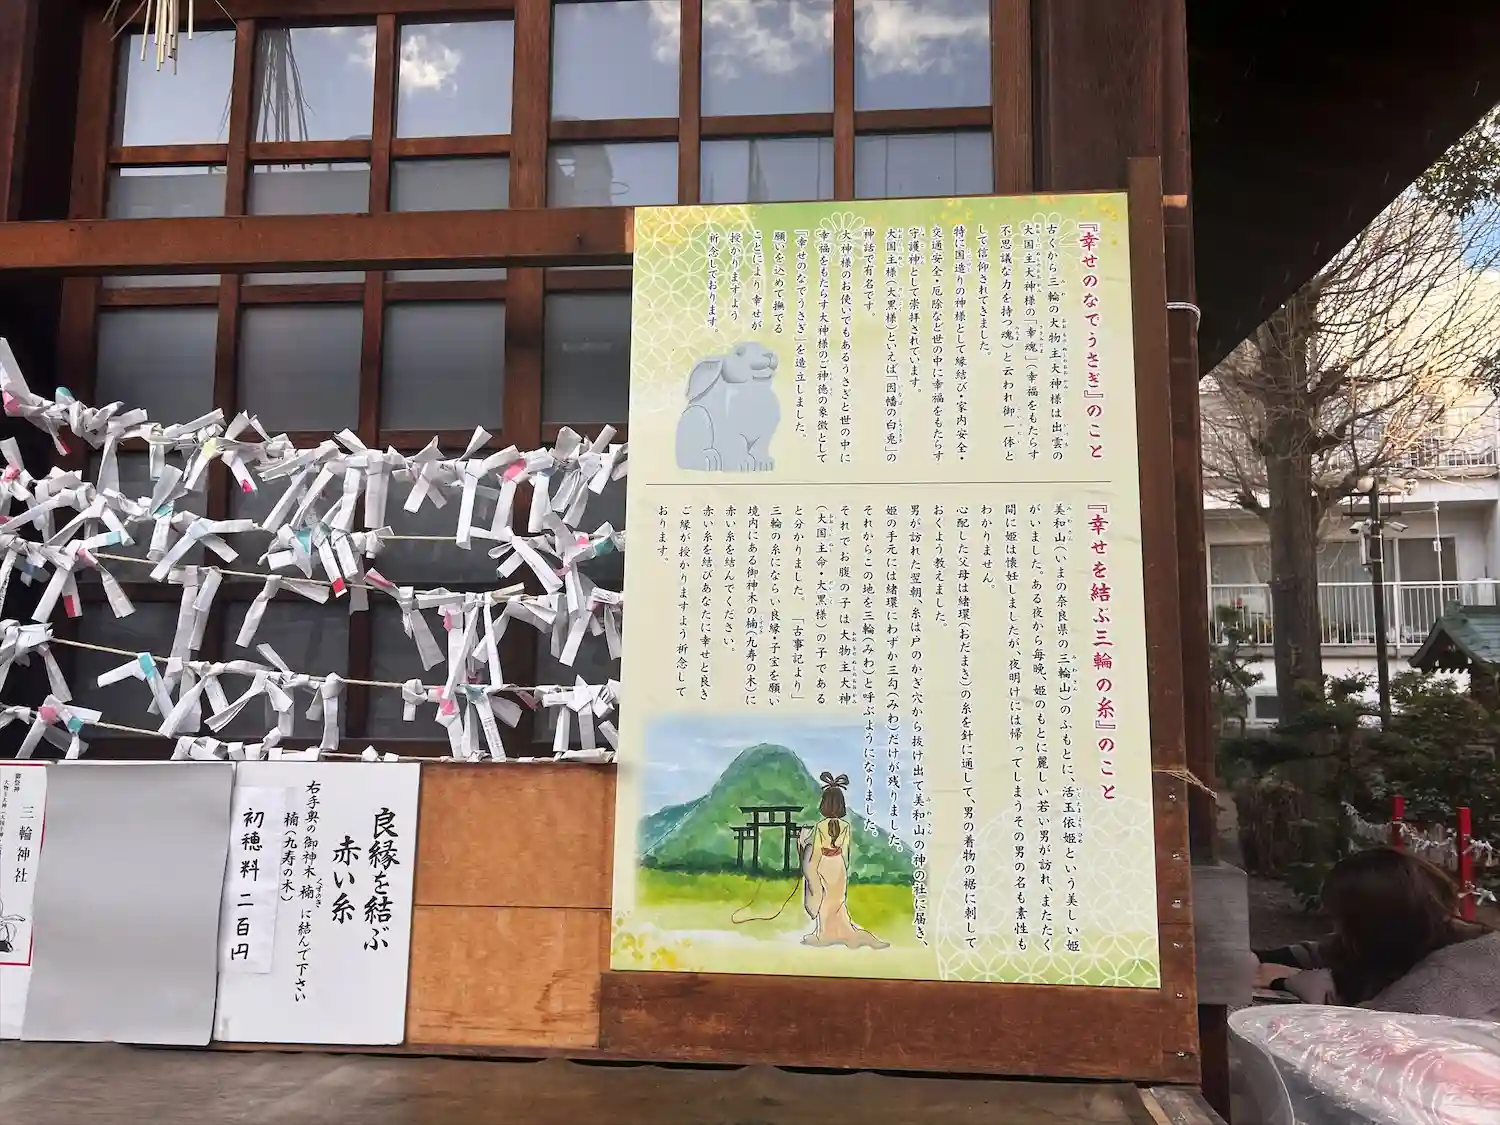 『幸せのなでうさぎ』のこと
古くから三輪の大物主大神様は出雲の
大国主大神様の「幸魂」（幸福をもたらす
不思議な力を持つ魂）と云われ御一体と
して信仰されてきました。
特に国造りの神様として縁結び・家内安全・
交通安全・厄除など世の中に幸福をもたらす
守護神として崇拝されています。
大国主様（大黒様）といえば「因幡の白兎」の
神話で有名です。
大神様のお使いでもあるうさぎと世の中に
幸福をもたらす大神様のご神徳の象徴として
『幸せのなでうさぎ』を造立しました。
願いを込めて撫でる
ことにより幸せが
授かりますよう
祈念しております。
『幸せを結ぶ三輪の糸』のこと
美和山（いまの奈良県の三輪山）のふもとに、活玉依姫という美しい姫
がいました。ある夜から毎晩、姫のもとに麗しい若い男が訪れ、またたく
間に姫は懐妊しましたが、夜明けには帰ってしまうその男の名も素性も
わかりません。
心配した父母は緒環（おだまき）の糸を針に通して、男の着物の裾に刺して
おくよう教えました。
男が訪れた翌朝、糸は戸のかぎ穴から抜け出て美和山の神の社に届き、
姫の手元には緒環にわずか三勾（みわ）だけが残りました。
それからこの地を三輪（みわ）と呼ぶようになりました。
それでお腹の子は大物主大神
（大国主命・大黒様）の子である
と分かりました。「古事記より」
三輪の糸にならい良縁・子宝を願い
境内にある御神木の楠（九寿の木）に
赤い糸を結んでください。
赤い糸を結びあなたに幸せと良き
ご縁が授かりますよう祈念して
おります。
良縁を結ぶ
赤い糸
右手奥の御神木 楠 に結んで下さい
楠（九寿の木）
初穂料 二百円
御祭神
三輪神社